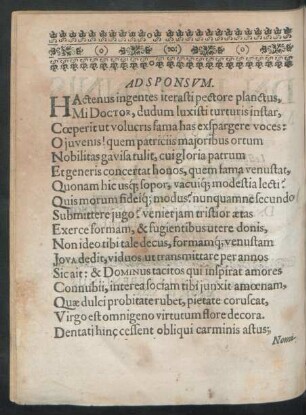 AD SPONSVM.
HActenus ingentes iterasti pectore planctus,
Mi DOCTOR, dudum luxisti turturis instar,
Cœperit ut volucris fama has exspargere voces:
O juvenis! quem patriciis majoribus ortum
Nobilitas gavisa tulit, cui gloria patrum
Et generis concertat honos, quem fama venustat,
Quonam hic usq; sopor, vacuiq; modestia lecti?
Quis morum fideiq; modus? nunquamne secundo
Submittere jugo? veniet jam tristior ætas
Exerce formam, & fugientibus utere donis,
Non ideo tibi tale decus, formamq; venustam
JOVA dedit, viduos ut transmittare per annos
Sic ait: & DOMINUS tacitos qui inspirat amores
Connubii, interea sociam tibi junxit amœnam,
Quæ dulci probitate rubet, pietate coruscat,
Virgo est omnigeno virtutum flore decora.
Dentati hinc cessent obliqui carminis astus,